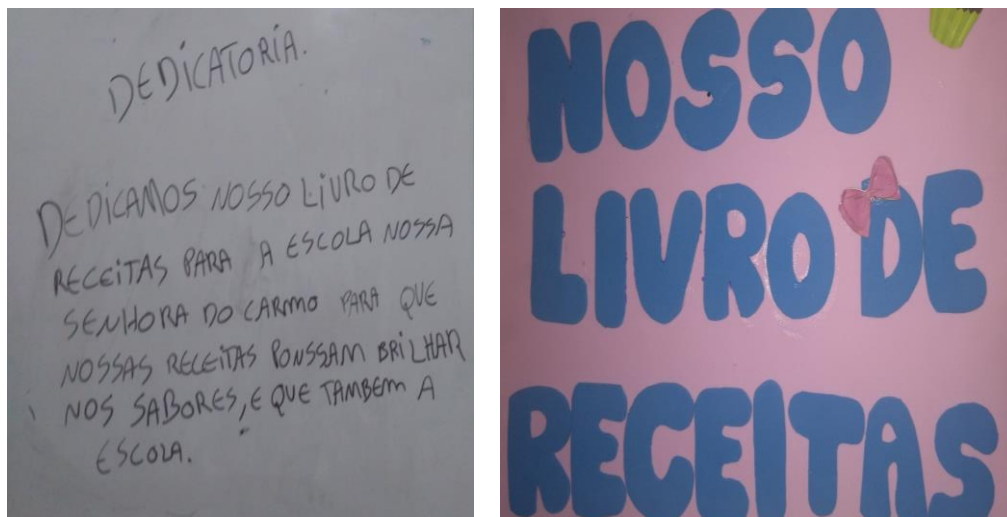 DEDICATORIA.
DEDICAMOS NOSSO LIVRO DE
RECEITAS PARA A ESCOLA NOSSA
SENHORA DO CARMO PARA QUE
NOSSAS RECEITAS PONSSAM BRILHAR
NOS SABORES, E QUE TAMBEM A
ESCOLA.
NOSSO
LIVRO DE
RECEITAS